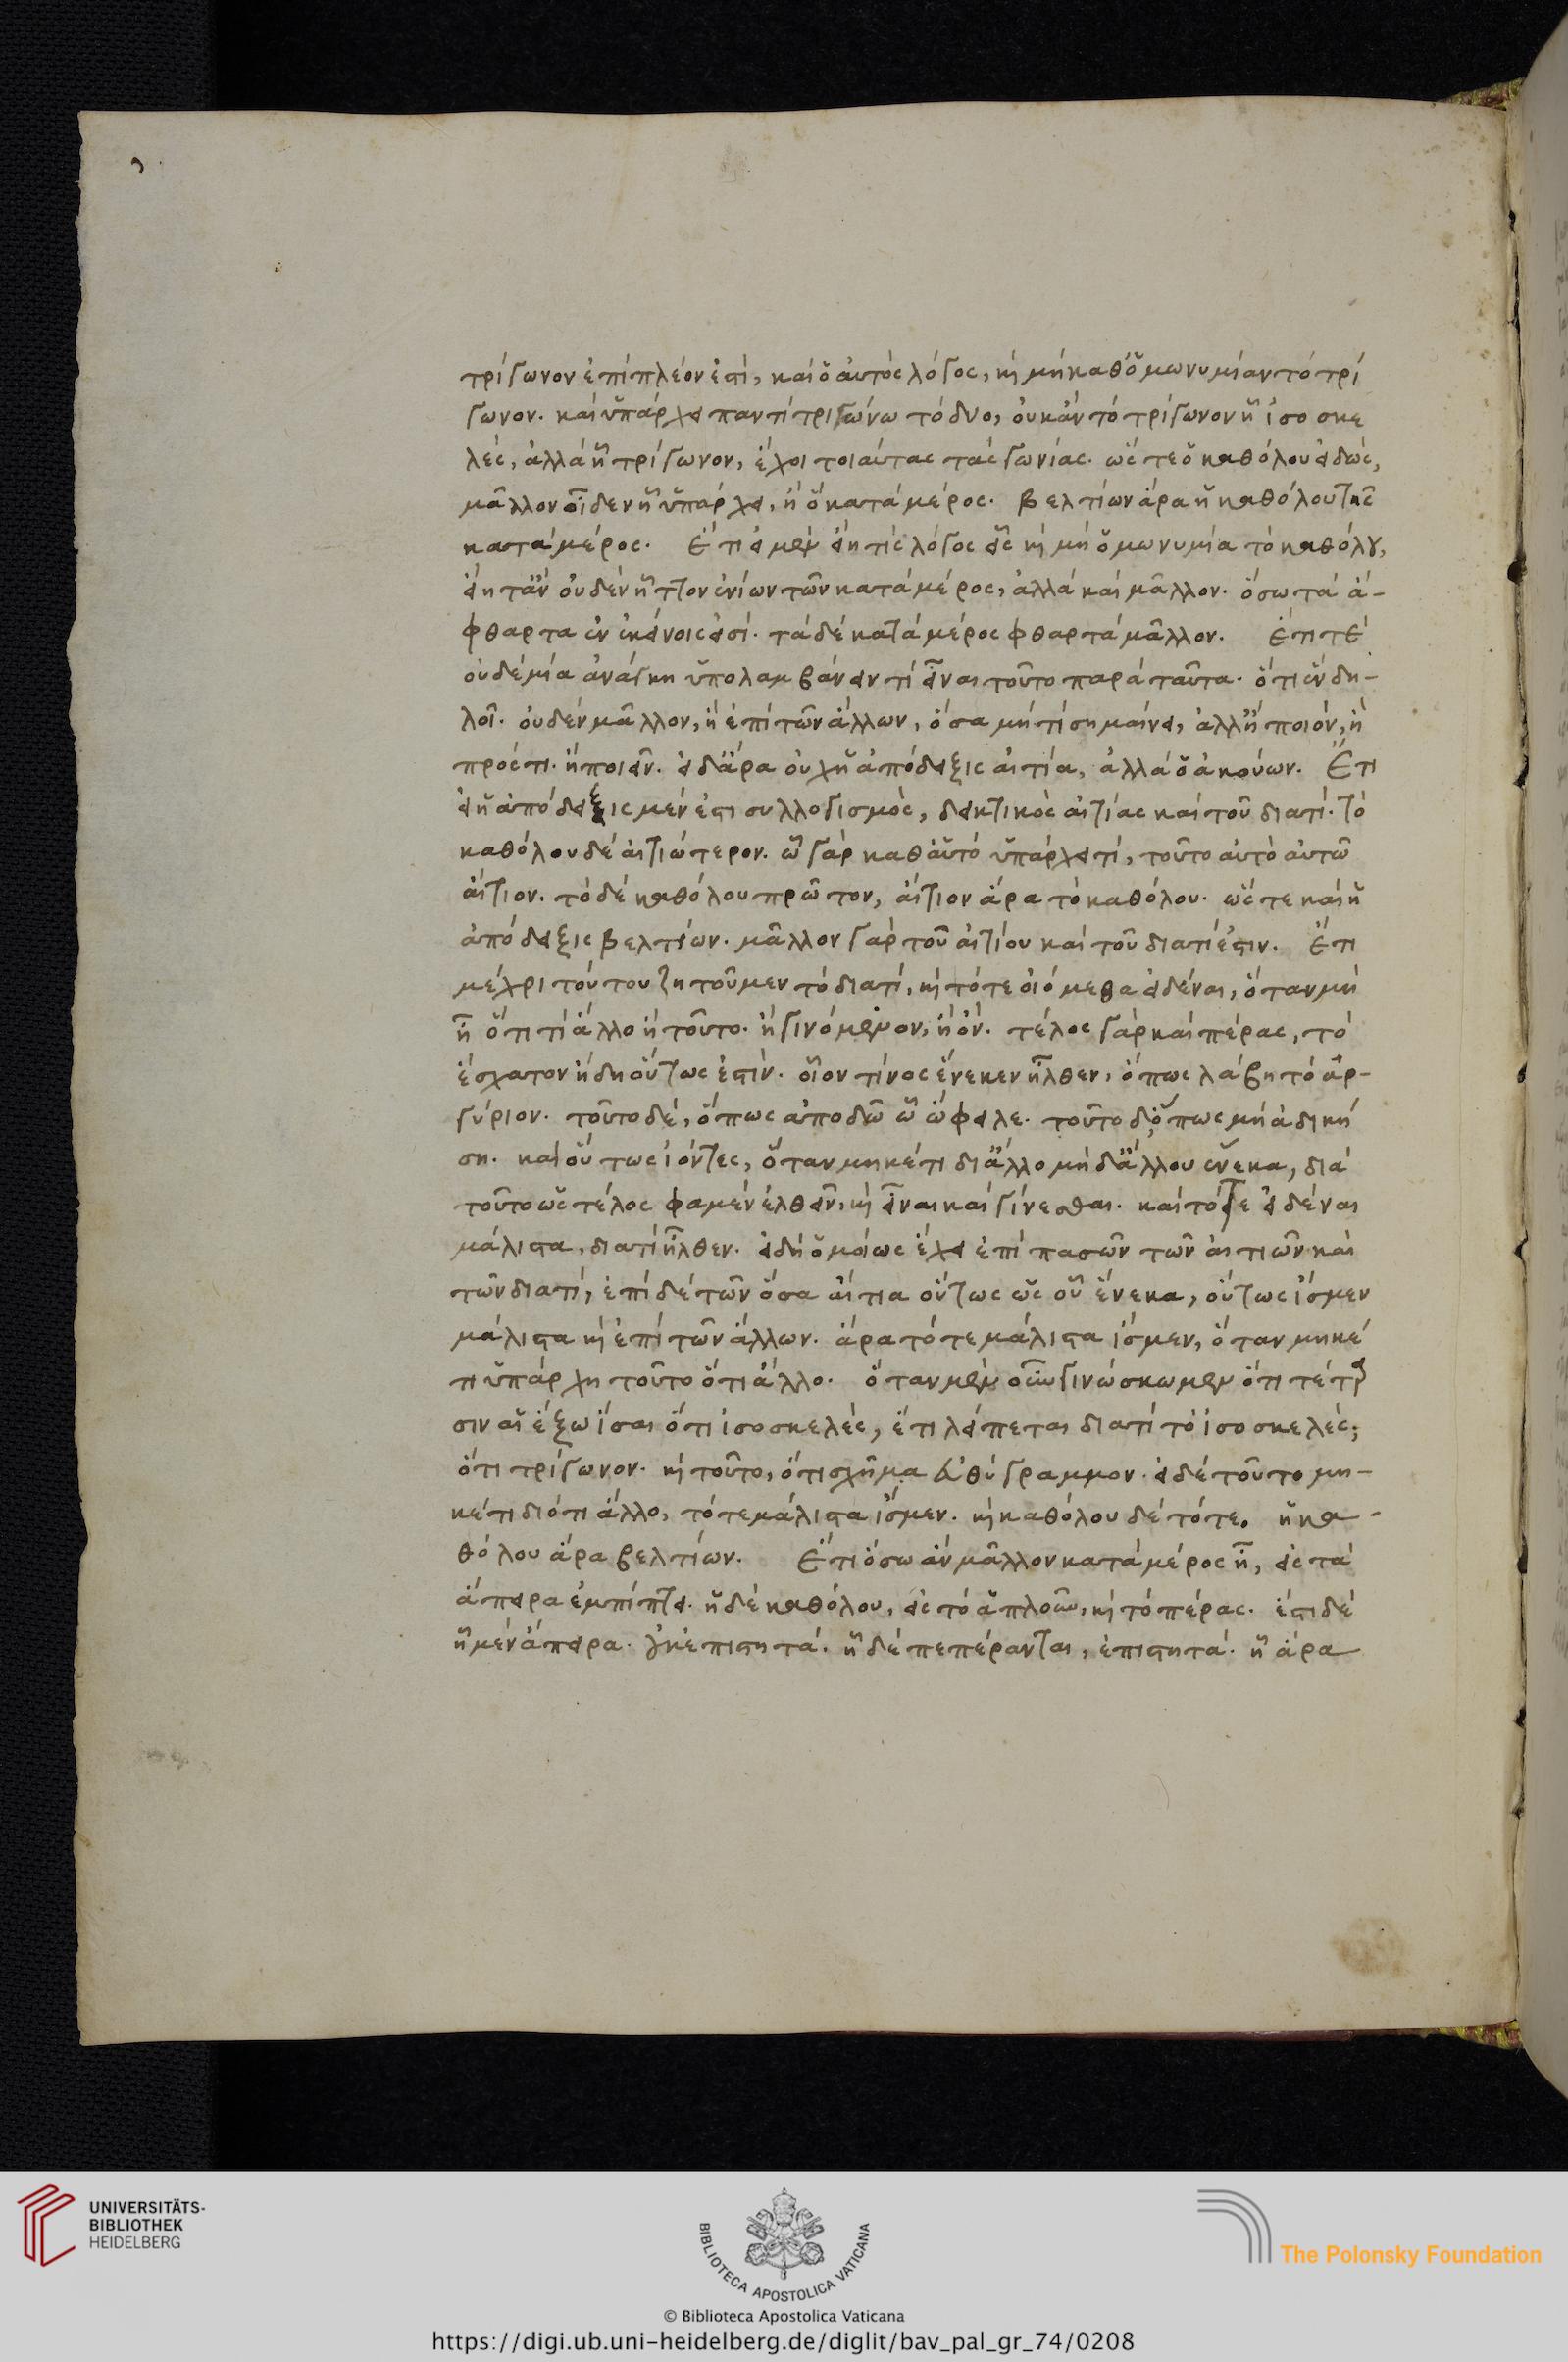 τρίγωνον ἐπὶ πλέον ἐστὶ, καὶ ὁ αὐτὸς λόγος, κὴ μὴ καθ' ὁμωνυμίαν τὸ τρί
γωνον. καὶ ὑπάρχει παντὶ τριγώνω τὸ δύο, οὐκ ἂν τὸ τρίγωνον ἧ ἰσοσκε
λὲς, ἀλλὰ ἧ τρίγωνον, ἔχοι τοιαύτας τὰς γωνίας. ὥς τε ὁ καθόλου εἰδὼς,
μᾶλλον οἶδεν ἧ ὑπάρχει, ἢ ὁ κατὰ μέρος. βελτίων ἄρα ἡ καθόλου τῆς
κατὰ μέρος. Ἔτι εἰ μὲν εἴη τὶς λόγος εἷς κὴ μὴ ὁμωνυμία τὸ καθόλου,
εἴη τ' ἂν οὐδὲν ἧττον ἐνίων τῶν κατὰ μέρος, ἀλλὰ καὶ μᾶλλον. ὅσω τὰ ἄ-
φθαρτα ἐν ἐκείνοις εἰσί. τὰ δὲ κατὰ μέρος φθαρτὰ μᾶλλον. Ἔτι τὲ
οὐδὲ μία ἀνάγκη ὑπολαμβάνειν τὶ εἶναι τοῦτο παρὰ ταῦτα. ὅτι ἓν δη-
λοῖ. οὐδὲν μᾶλλον, ἢ ἐπὶ τῶν ἄλλων, ὅσα μὴ τὶ σημαίνει, ἀλλ' ἢ ποιόν, ἢ
πρός τι. ἢ ποιεῖν. εἰ δ' ἄρα οὐχ ἡ ἀπόδειξις αἰτία, ἀλλὰ ὁ ἀκούων. Ἔτι
εἰ ἡ ἀπόδειξις μέν ἐστι συλλογισμὸς, δεικτικὸς αἰτίας καὶ τοῦ διατί. τὸ
καθόλου δὲ αἰτιώτερον. ὧ γὰρ καθ' αὑτὸ ὑπάρχει τί, τοῦτο αὐτὸ αὐτῶ
αἴτιον. τὸ δὲ καθόλου πρῶτον, αἴτιον ἄρα τὸ καθόλου. ὥς τε καὶ ἡ
ἀπόδειξις βελτίων. μᾶλλον γὰρ τοῦ αἰτίου καὶ τοῦ διατί ἐστιν. Ἔτι
μέχρι τούτου ζητοῦμεν τὸ διατί, κὴ τότε οἰόμεθα εἰδέναι, ὅταν μὴ
ἦ ὅτι τὶ ἄλλο ἢ τοῦτο. ἢ γινόμενον, ἢ ὄν. τέλος γὰρ καὶ πέρας, τὸ
ἔσχατον ἤδη οὕτως ἐστίν. οἷον τίνος ἕνεκεν ἦλθεν, ὅπως λάβη τὸ ἀρ-
γύριον. τοῦτο δὲ, ὅπως ἀποδῶ ὧ ὤφειλε. τοῦτο δ' ὅπως μὴ ἀδική
ση. καὶ οὕτως ἰόντες, ὅταν μηκέτι δι' ἄλλο μὴ δ' ἄλλου ἕνεκα, διὰ
τοῦτο ὡς τέλος φαμὲν ἐλθεῖν, κὴ εἶναι καὶ γίνεσθαι. καὶ τότε εἰδέναι
μάλιστα, διατί ἦλθεν. εἰ δὴ ὁμοίως ἔχει ἐπὶ πασῶν τῶν αἰτιῶν καὶ
τῶν διατί, ἐπὶ δὲ τῶν ὅσα αἴτια οὕτως ὡς οὗ ἕνεκα, οὕτως ἴσμεν
μάλιστα κὴ ἐπὶ τῶν ἄλλων. ἄρα τότε μάλιστα ἴσμεν, ὅταν μηκέ
τι ὑπάρχη τοῦτο ὅτι ἄλλο. ὅταν μὲν οὖν γινώσκωμεν ὅτι τέτρα
σιν αἱ ἔξω ἴσαι ὅτι ἰσοσκελὲς, ἔτι λείπεται διατί τὸ ἰσοσκελὲς;
ὅτι τρίγωνον. κὴ τοῦτο, ὅτι σχῆμα εὐθύγραμμον. εἰ δὲ τοῦτο μη-
κέτι διότι ἄλλο, τότε μάλιστα ἴσμεν. κὴ καθόλου δὲ τότε. ἡ κα-
θόλου ἄρα βελτίων. Ἔτι ὅσω ἂν μᾶλλον κατὰ μέρος ἦ, εἰς τὰ
ἄπειρα ἐμπίπτει. ἡ δὲ καθόλου, εἰς τὸ ἁπλοῦν, κὴ τὸ πέρας. ἔστι δὲ
ἧ μὲν ἄπειρα. οὐκ ἐπιστητά. ἧ δὲ πεπέρανται, ἐπιστητά. ἧ ἄρα
UNIVERSITÄTS-
BIBLIOTHEK
HEIDELBERG
BIBLIOTECA APOSTOLICA VATICANA
The Polonsky Foundation
© Biblioteca Apostolica Vaticana
https://digi.ub.uni-heidelberg.de/diglit/bav_pal_gr_74/0208